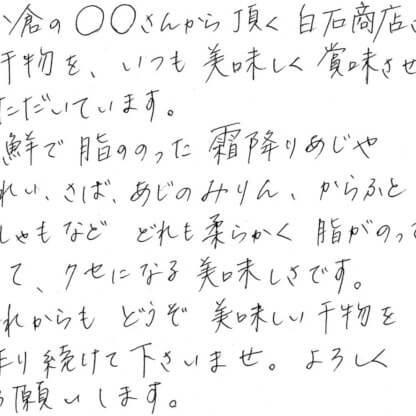 倉の〇〇さんから頂く白石商店
干物を、いつも美味しく賞味させ
ただいています。
鮮で脂ののった霜降りあじや
れい、さば、あじのみりん、からふと
しゃもなど どれも柔らかく 脂がのって
て、クセになる美味しさです。
れからも どうぞ 美味しい干物を
り続けて下さいませ。よろしく
願いします。